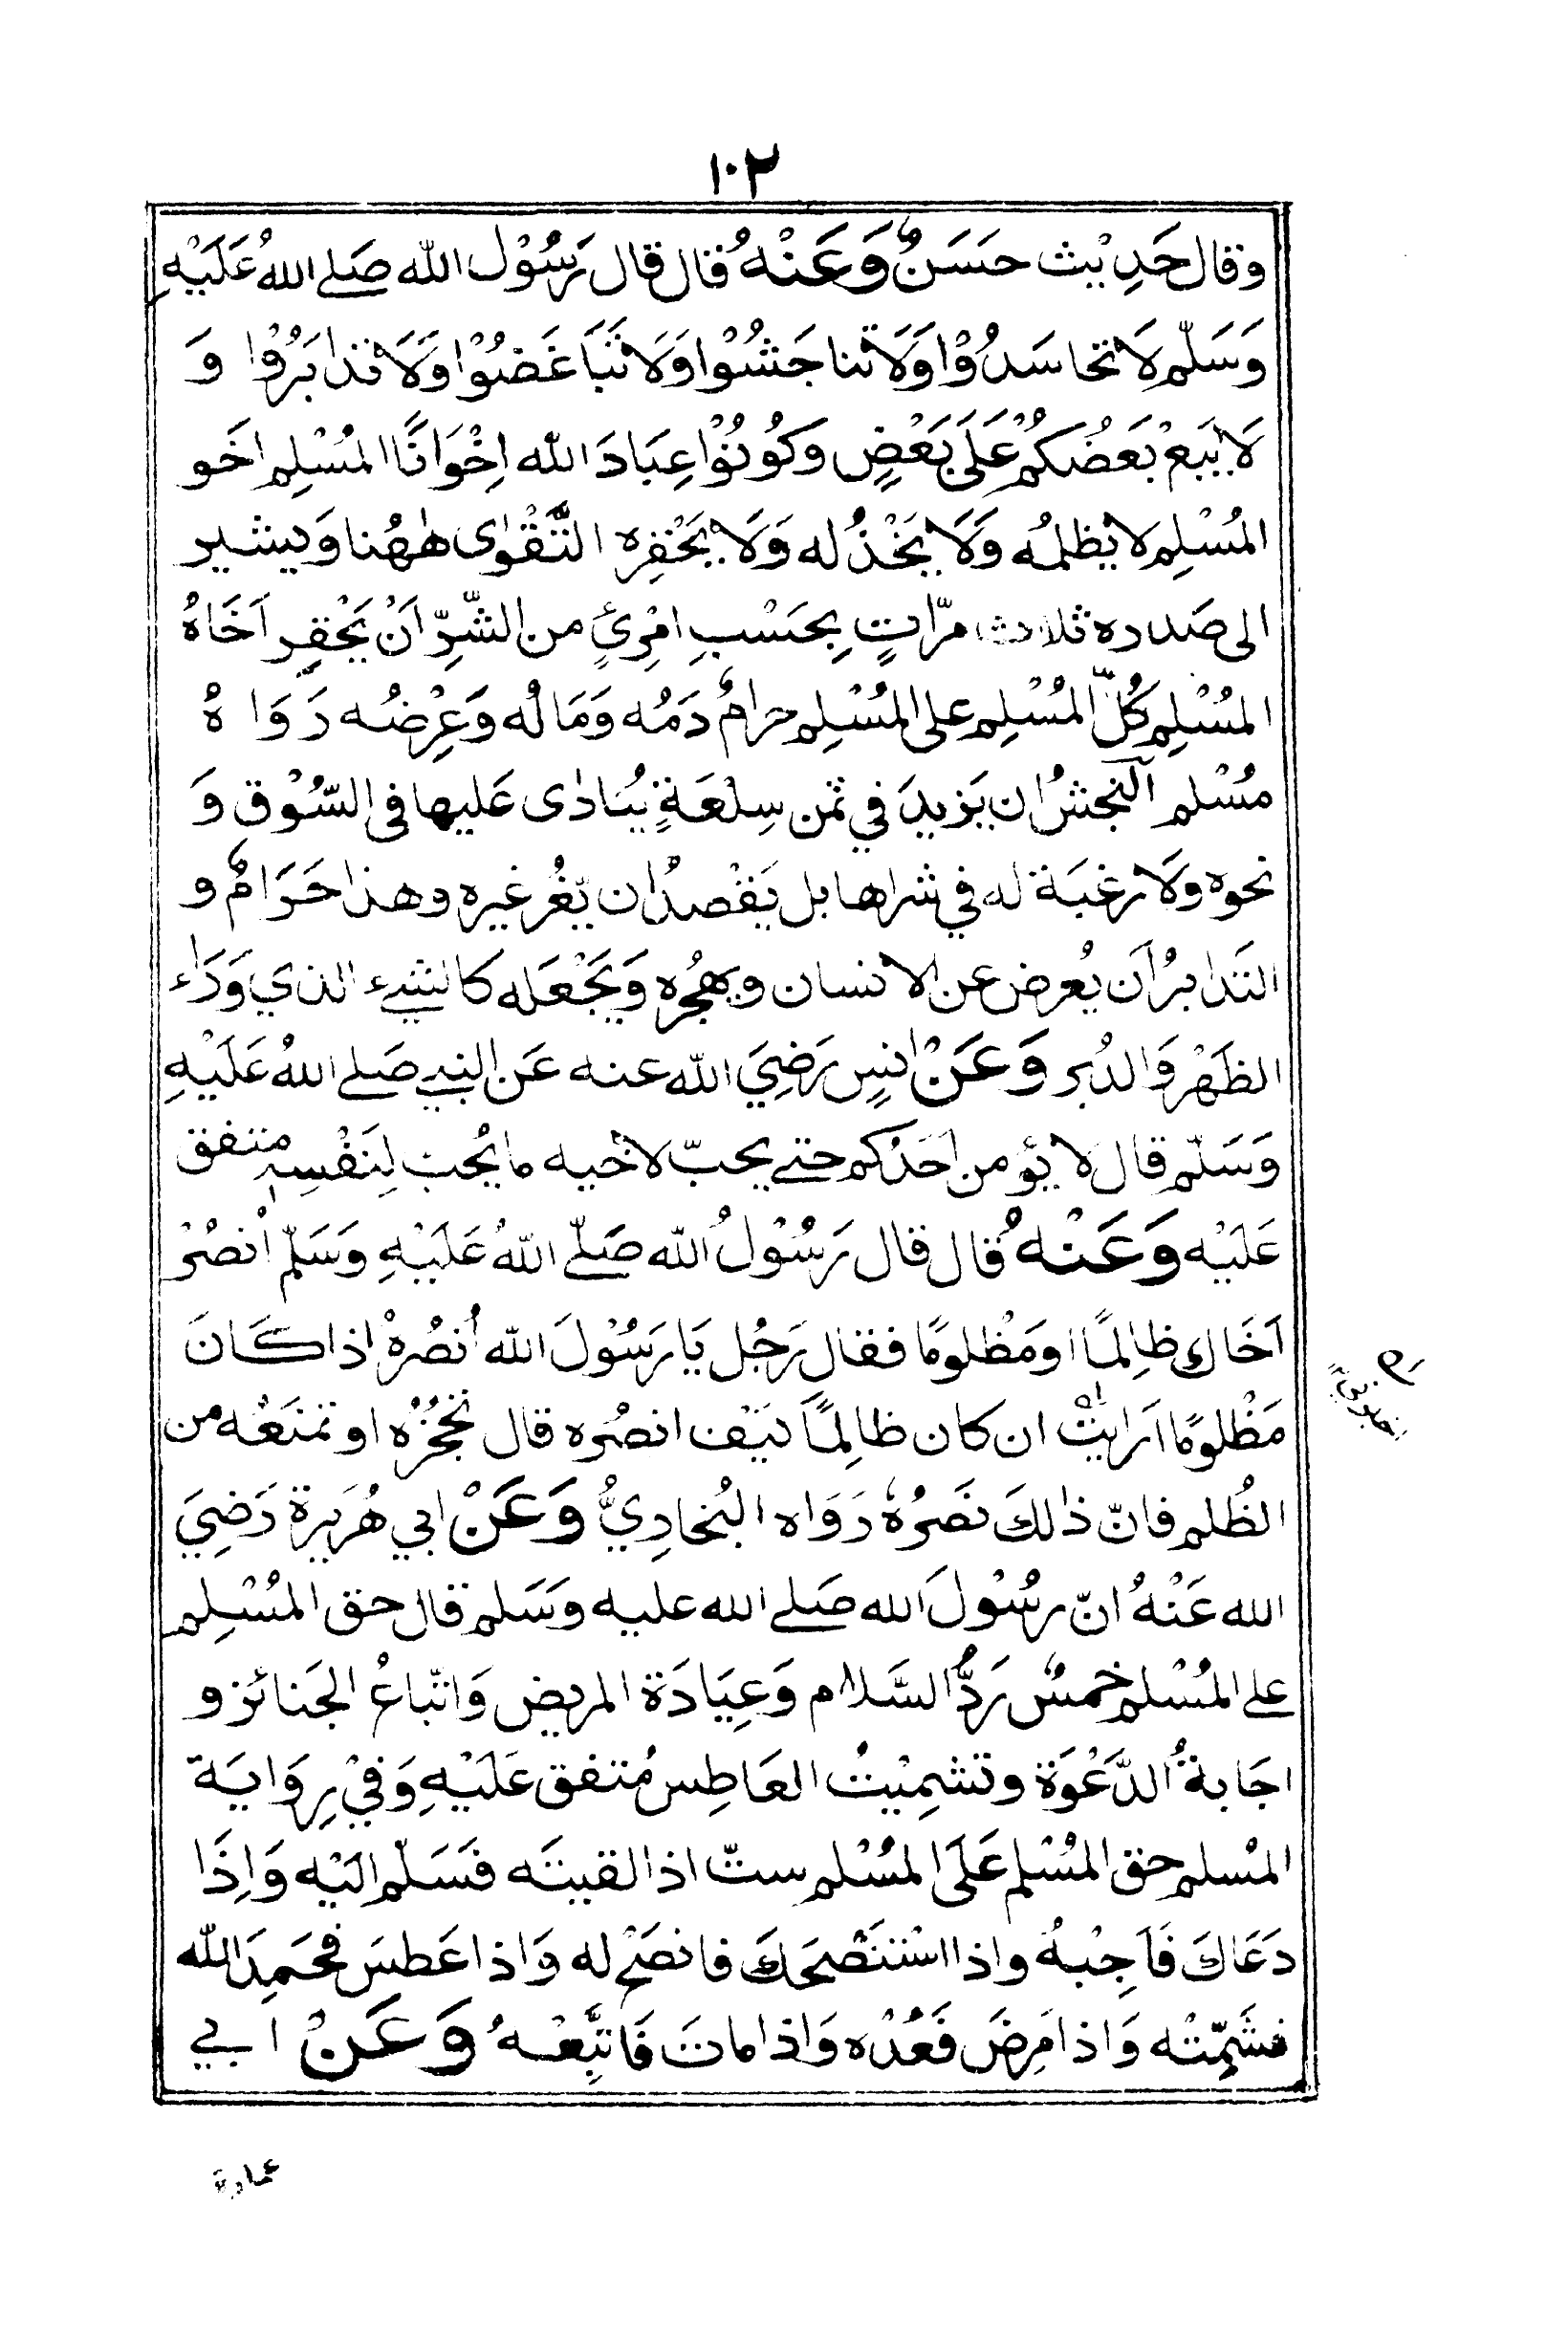 ١٠٢
وقال حَدِيْث حَسَنٌ وَعَنْهُ قال قال رَسُوْل الله صَلے اللهُ عَلَيْهِ
وَسَلّم لَا تحاسَدُوْا وَلَا تناجَشُوْا وَلَا تَبَاغَضُوْا وَلَا تدابَرُوْا وَ
لَا يَبعْ بَعَضُكُمْ عَلَى بَعْضٍ وَكُوْنُوْا عِبَادَ الله اِخْوَانًا المُسْلِم اخَو
المُسْلِم لا يظلمُه وَلَا يَخْذُله وَلَا يَحْقِره التَّقْوٰى هٰهُنا وَيشير
الى صَدره ثلاث مرّاتٍ بِحَسْبِ امْرِئٍ من الشَّرِّ اَنْ يَحْقِر اَخَاهُ
المُسْلِم كُلّ المُسْلِم على المُسْلِم حرامٌ دَمُه وَمَالُه وَعِرْضُه رَوَاهُ
مُسْلم النجشُ ان يَزيدَ في ثمن سِلْعَةٍ يُنَادٰى عَليها فى السُّوْق وَ
نحوه وَلَا رغبَة له في شراها بل يَقْصدُ ان يّغُر غيره وهذا حَرَامٌ و
التَدابرُ اَن يُعرض عن الانسان ويهجُره وَيَجْعَله كالشيء الذي وَرَاء
الظَهْر وَالدُبر وَعَنْ انسٍ رَضِيَ الله عنه عَن النبي صَلے اللهُ عَلَيْهِ
وَسَلّم قال لا يؤمن اَحَدُكم حتے يحبّ لاخيه ما يُحب لِنَفْسِهٖ متفق
عَلَيْه وَعَنْهُ قال قال رَسُوْلُ الله صَلّے اللهُ عَلَيْهِ وَسَلّم اُنْصُرْ
اَخَاك ظالِمًا او مَظْلومًا فقال رَجُل يَا رَسُوْلَ الله اُنصُرهْ اذا كَانَ
مَظْلومًا اَرَايتَ ان كان ظالِمًا كَيْف انصُره قال تحْجُزُه او تمنَعُه من
الظُلم فانّ ذٰلكَ نَصَرُهٗ رَوَاه البُخارِيُّ وَعَنْ ابي هُرَيرة رَضِيَ
الله عَنْهُ انّ رسُوْلَ الله صَلے الله عليه وَسَلم قال حق المُسْلِم
علے المُسْلم خمسٌ رَدُّ السَّلام وَعِيَادَة المريض وَاتّباعُ الجَنائز و
اجَابةُ الدَّعْوَة وتشمِيْتُ العَاطِس مُتفق عَلَيْهِ وَفِيْ رِوَايَة
المْسلم حق المُسْلم عَلَى المُسْلم ستّ اذا لقيتَه فَسَلّم الَيْه وَاِذَا
دَعَاكَ فَاَجِبْهُ واذا اسْتَنْصَحَكَ فانصَحْ له وَاذا عَطسَ فحَمِدَ الله
فشَمِّتْه وَاذا مَرِضَ فَعُدْه وَاذا ماتَ فَاتَّبِعْهُ وَعَنْ ابي
عمارة